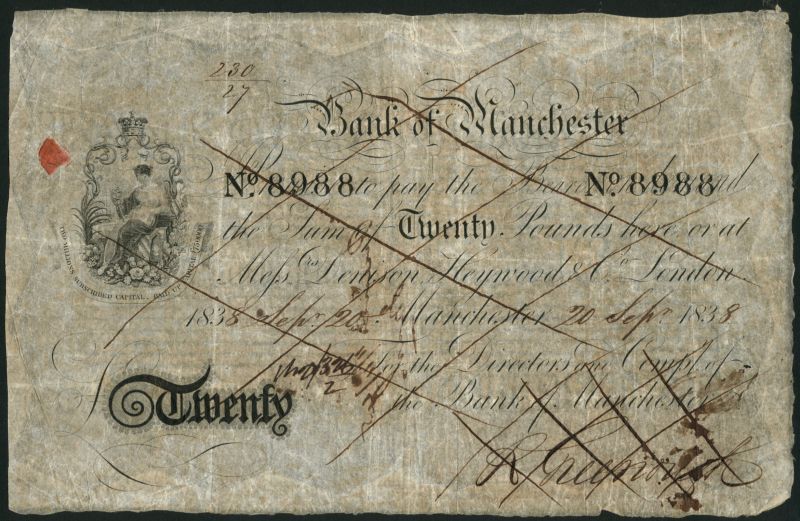 230
27
Bank of Manchester
No. 8988 to pay the Bearer on demand No. 8988
the Sum of Twenty Pounds here or at
Messrs. Denison, Heywood & Co. London.
1838 Sepr. 20 Manchester 20 Sepr. 1838
for the Directors and Compy. of
£ Twenty the Bank of Manchester
TWO MILLIONS SUBSCRIBED CAPITAL.